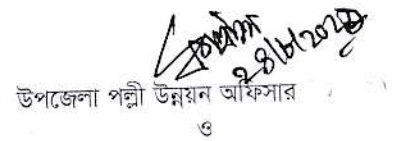 ২৪/৮/২০২৫
উপজেলা পল্লী উন্নয়ন অফিসার
ও